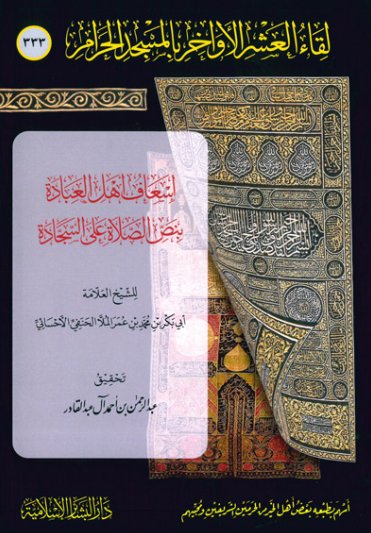 لقاء العشر الأواخر بالمسجد الحرام
٣٣٣
إسعاف أهل العبادة
بنص الصلاة على السجادة
للشيخ العلامة
أبي بكر بن محمد بن عمر الملا الحنفي الأحسائي
تحقيق
عبد الرحمن بن أحمد آل عبد القادر
أسهم بطبعه بعض أهل الخير من الحرمين الشريفين ومحبيهم
دار البشائر الإسلامية